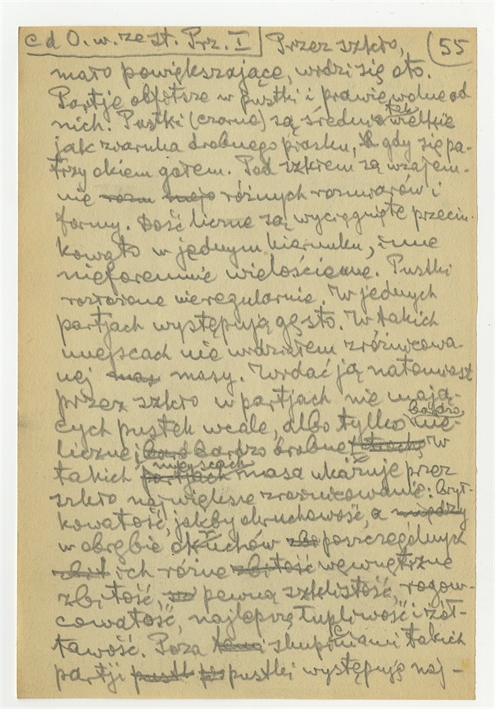 c d O. w. ze st. Prz. I Przez szkło, 55
mało powiększające, widzi się oto.
Partje obfitsze w pustki i prawie wolne od
nich. Pustki (czarne) są średnio tak wielkie
jak ziarnka drobnego piasku, gdy się pa-
trzy okiem gołem. Pod szkłem są wzajem-
nie różnych rozmiarów i
formy. Dość liczne są wyciągnięte przecin-
kowato w jednym kierunku, inne
nieforemnie wielościenne. Pustki
rozsiane nieregularnie. W jednych
partjach występują gęsto. W takich
miejscach nie widziałem zróżnicowa-
nej masy. Widać ją natomiast
przez szkło w partjach nie mają-
cych pustek wcale, albo tylko bardzo nie-
liczne, bardzo drobne. W
takich miejscach masa ukazuje przez
szkło największe zróżnicowanie: brył-
kowatość, jakby okruchowość, a
w obrębie okruchów poszczególnych
ich różne wewnętrzne
zbitość, pewną szklistość, rogow-
cowatość, najlepszą łupliwość i żół-
tawość. Poza skupieniami takich
partji pustki występują naj-